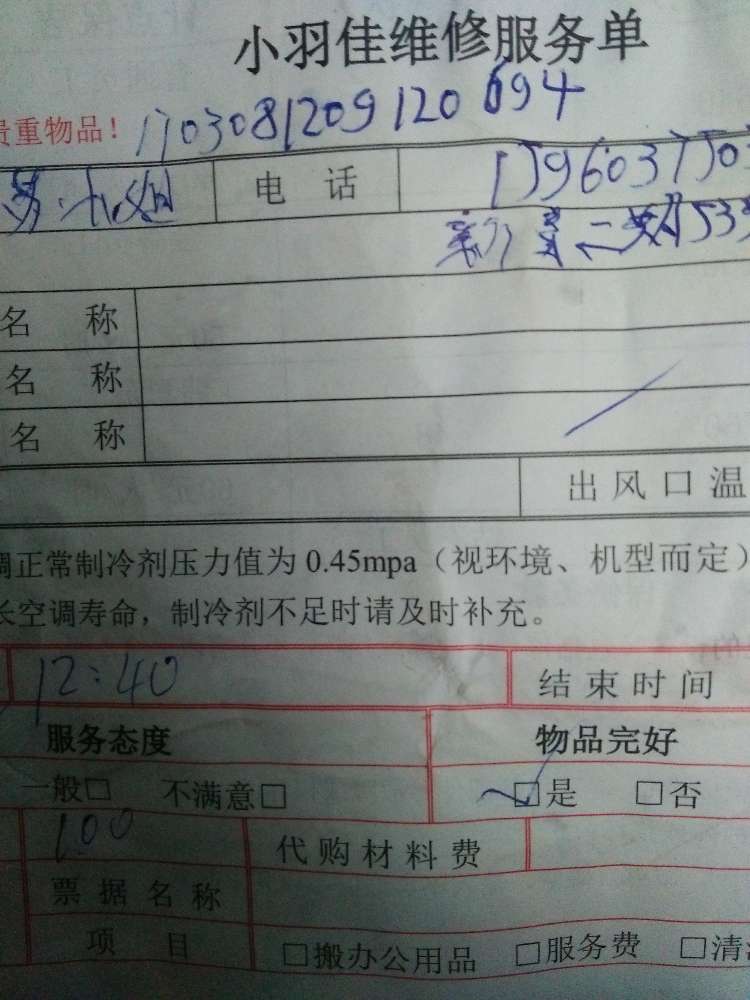 小羽佳维修服务单
贵重物品！ 1703081209120694
小姐 电 话 1596037150
名 称
名 称
名 称
出 风 口 温
调正常制冷剂压力值为 0.45mpa（视环境、机型而定）
长空调寿命，制冷剂不足时请及时补充。
12:40 结 束 时 间
服务态度 物品完好
一般□ 不满意□ □是 □否
100 代 购 材 料 费
票 据 名 称
项 目 □搬办公用品 □服务费 □清